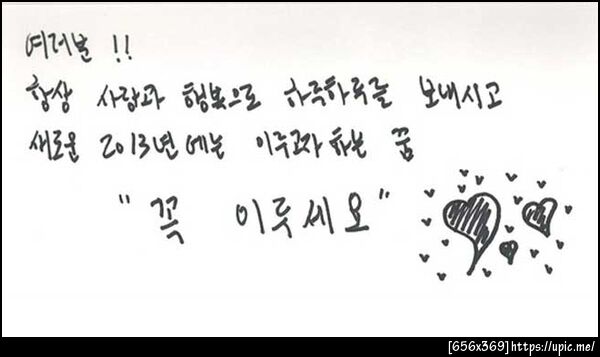 여러분 !!
항상 사랑과 행복으로 하루하루를 보내시고
새로운 2013년에는 이루고자 하는 꿈
"꼭 이루세요"
[656x369]https://upic.me/